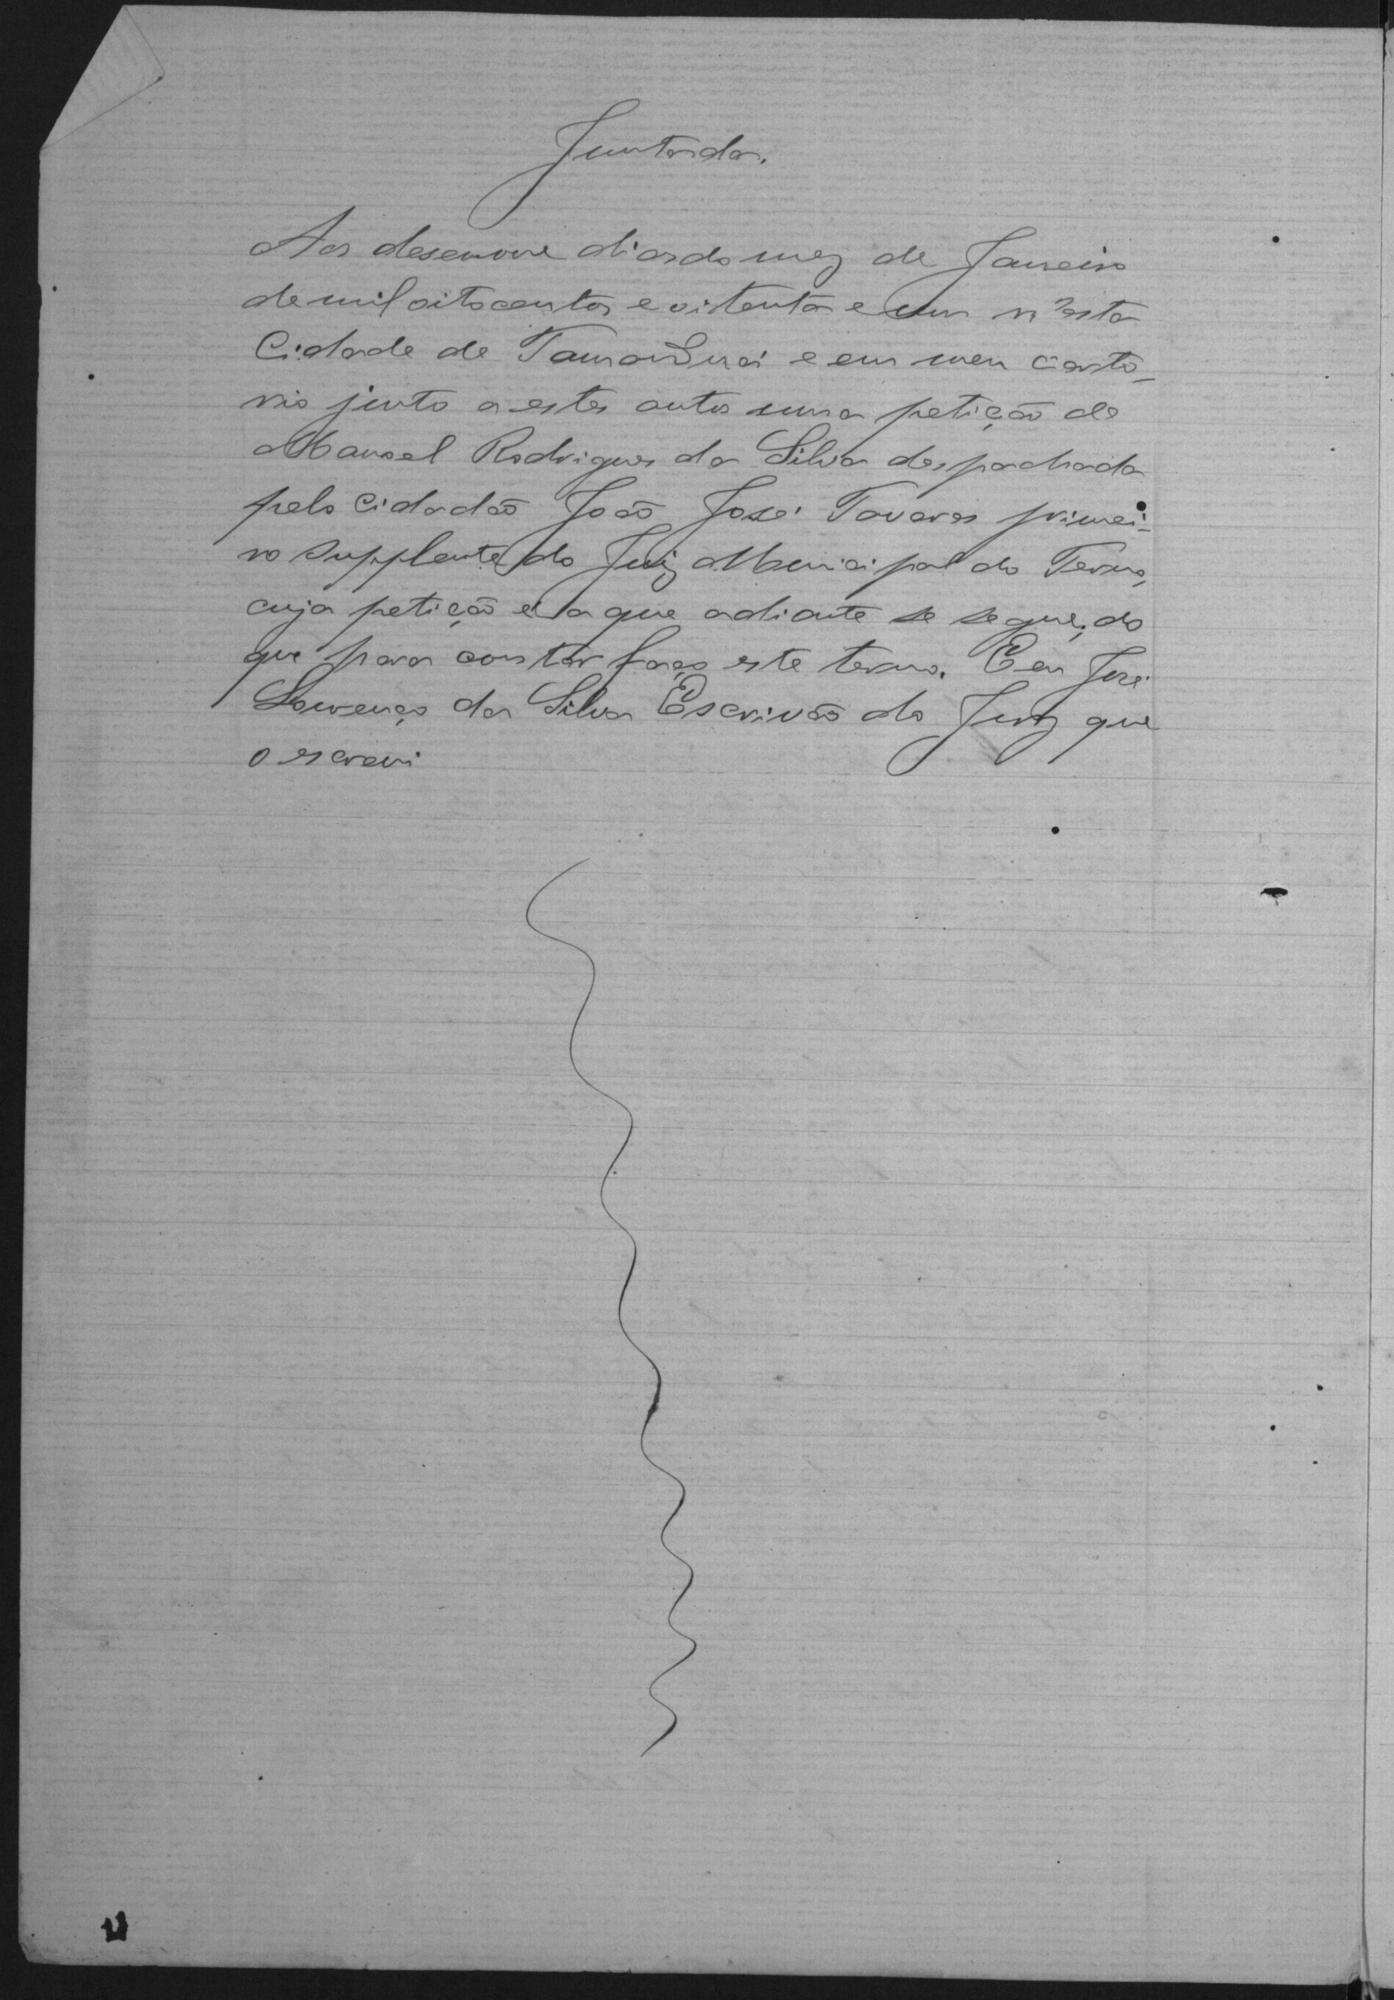 Juntada.
Aos desenove dias do mez de Janeiro
de mil oitocentos e oitenta e um n'esta
Cidade de Tamanduá e em meu carto-
rio junto a estes autos uma petição de
Manoel Rodrigues da Silva despachada
pelo cidadão João José Tavares primei-
ro supplente do Juiz Municipal do Termo,
cuja petição é a que adiante se segue, do
que para constar faço este termo. E eu José
Lourenço da Silva Escrivão do Juiz que
o escrevi